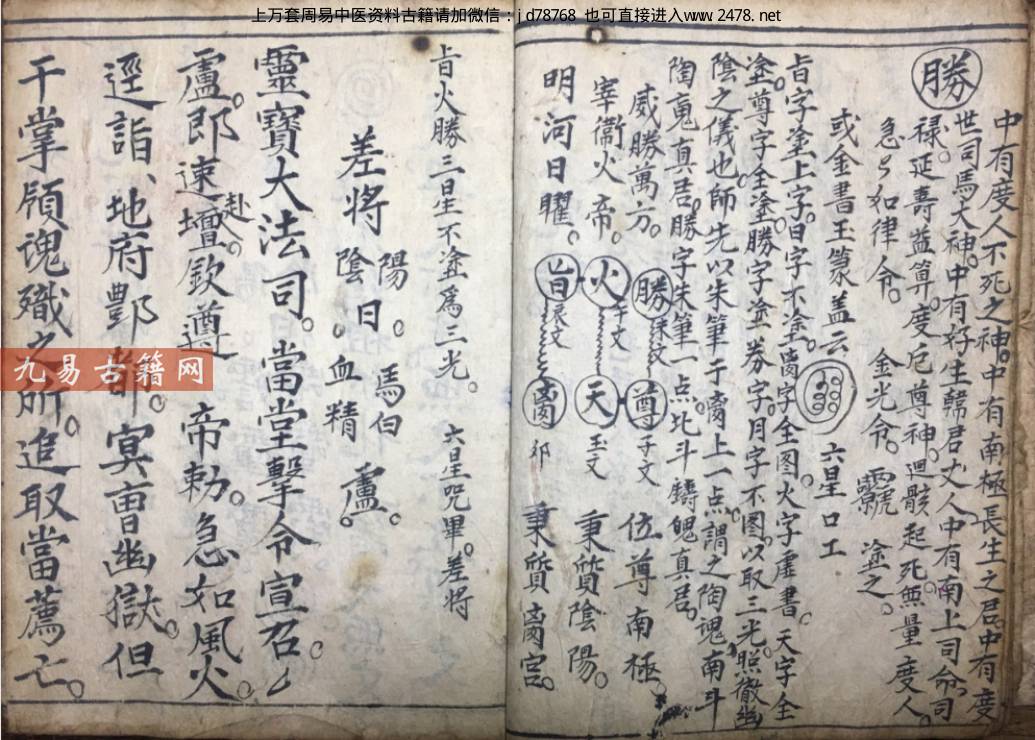 上万套周易中医资料古籍请加微信：jd78768 也可直接进入www.2478.net
勝
中有度人不死之神。中有南極長生之君。中有度
世司馬大神。中有好生韓君丈人中有南上司命司
禄。延壽益算。度厄尊神。迴骸起死。無量度人
急急如律令。 金光令。 塗之。
或金書玉篆盖云 六星口工
旨字塗上字。日字不塗。离字全图。火字虚書。天字全
塗。尊字全塗。勝字塗券字。月字不图。以取三光照徹幽
陰之儀也。師先以朱筆于离上一点。謂之陶魂。南斗
陶䰟真君。勝字朱筆一点。北斗鑄魄真君。
威勝萬方。 勝 尊 子文 位尊南極
宰衛火帝。 火 午文 天 玉文 秉質陰陽。
明河日曜。 旨 离 秉質离宫。
旨火勝三星不塗為三光。 六星咒畢。差將
差將 陽 陰 日。 血精 馬白 盧。
靈寶大法司。當堂擊令宣召。
盧郎速赴壇。欽遵 帝勅。急如風火。
逕詣、地府酆都。冥曹幽獄。但
干掌領魂職之所。追取當薦亡。
九易古籍网